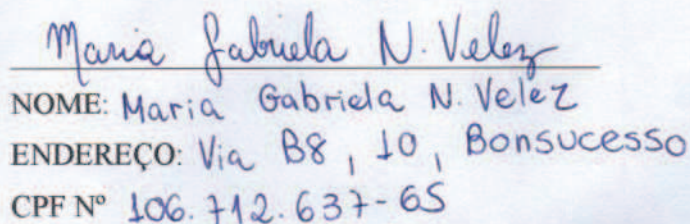 Maria Gabriela N. Velez
NOME: Maria Gabriela N. Velez
ENDEREÇO: Via B8, 10, Bonsucesso
CPF Nº 106.712.637-65